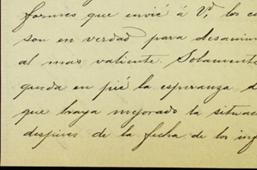 formes que envié á V., los cu
son en verdad para desanim
al mas valiente. Solamente
queda en pié la esperanza d
que haya mejorado la situac
despues de la fecha de los inf